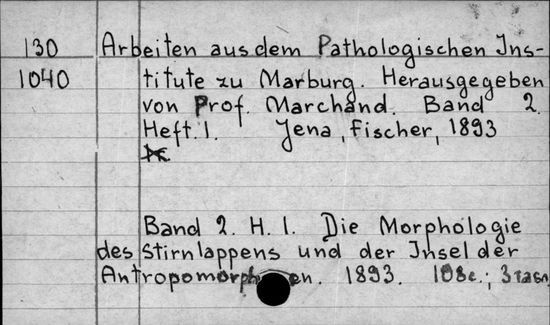 130 Arbeiten aus dem Pathologischen Ins-
1040 titute zu Marburg. Herausgegeben
von Prof. Marchand. Band 2.
Heft. 1. Jena, Fischer, 1893
Band 2. H. 1. Die Morphologie
des Stirnlappens und der Insel der
1893. 108c.; 3